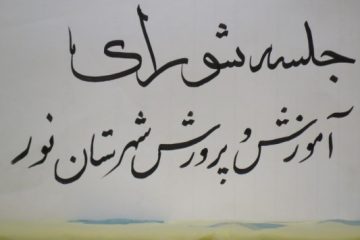 جلسه شورای
آموزش و پرورش شهرستان نور